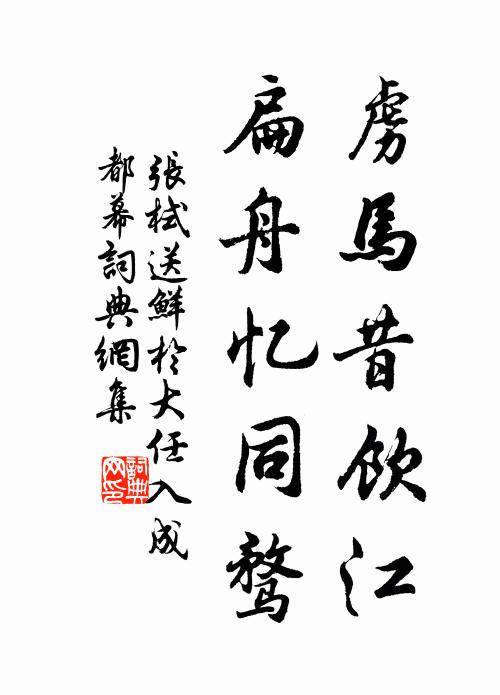 虏馬昔飲江
扁舟忆同鹜
張栻送鮮於大任入成
都幕詞典網集
詞典网印